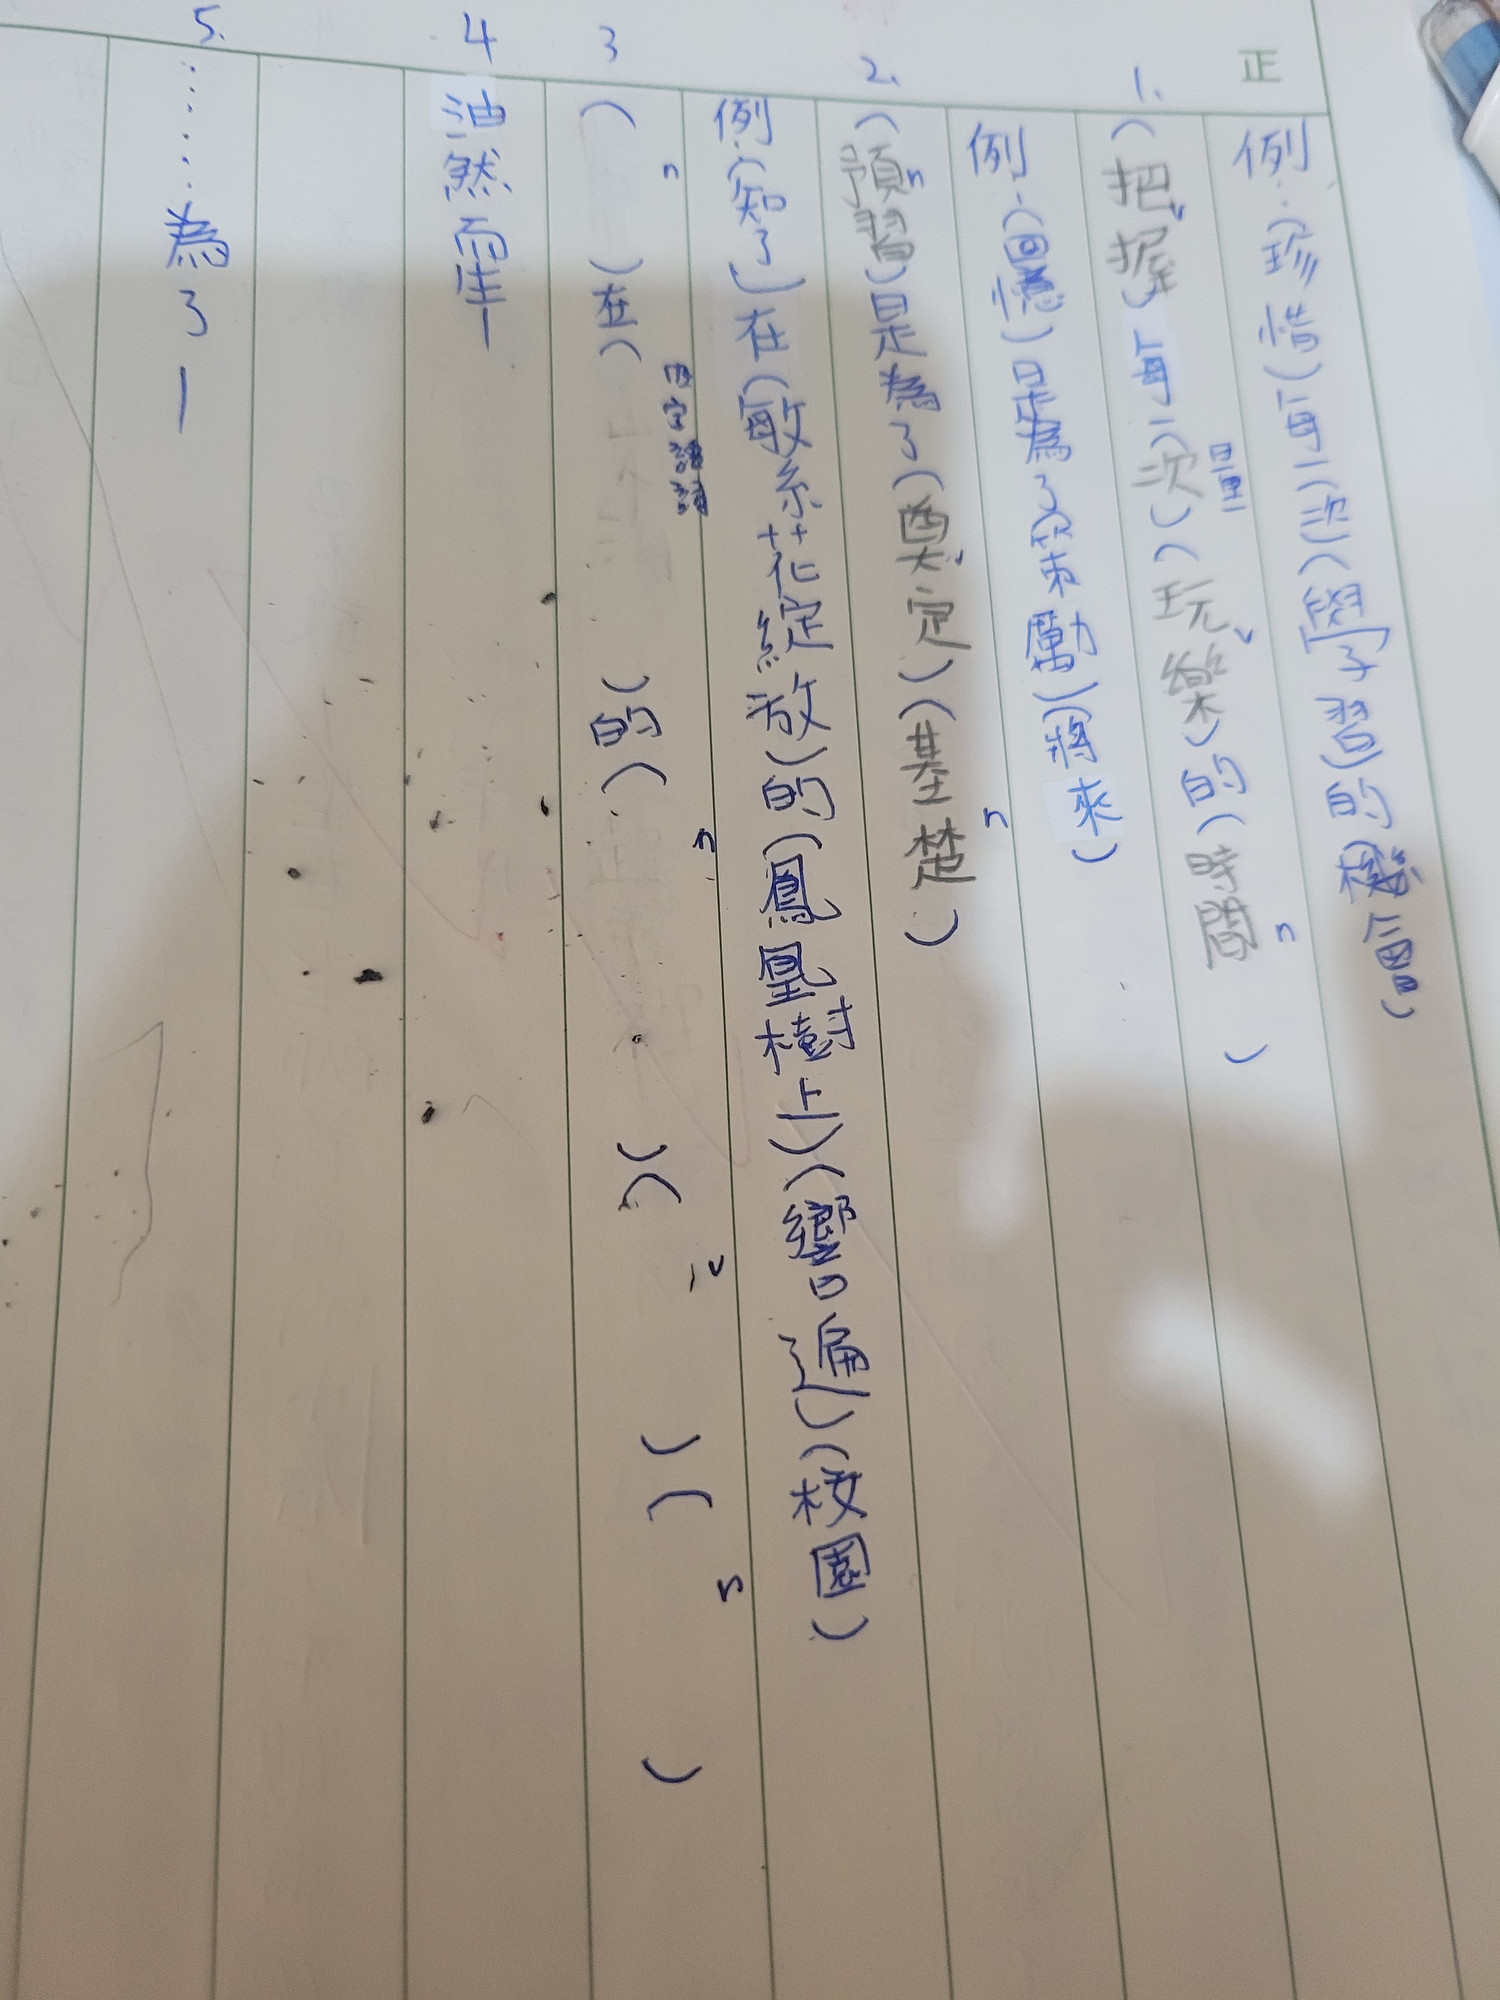 正
例:(珍惜)每一(次)(學習)的(機會)
1.
(把握)每一(次)(玩樂)的(時間)
v
量
v
n
例:(回憶)是為了(策勵)(將來)
2.
(預習)是為了(奠定)(基楚)
n
v
n
例:(知了)在(敏系花綻放)的(鳳凰樹上)(響遍)(校園)
3
( )在( )的( )( )( )
n
四字語詞
n
v
n
4
油然而生
5.
……為了